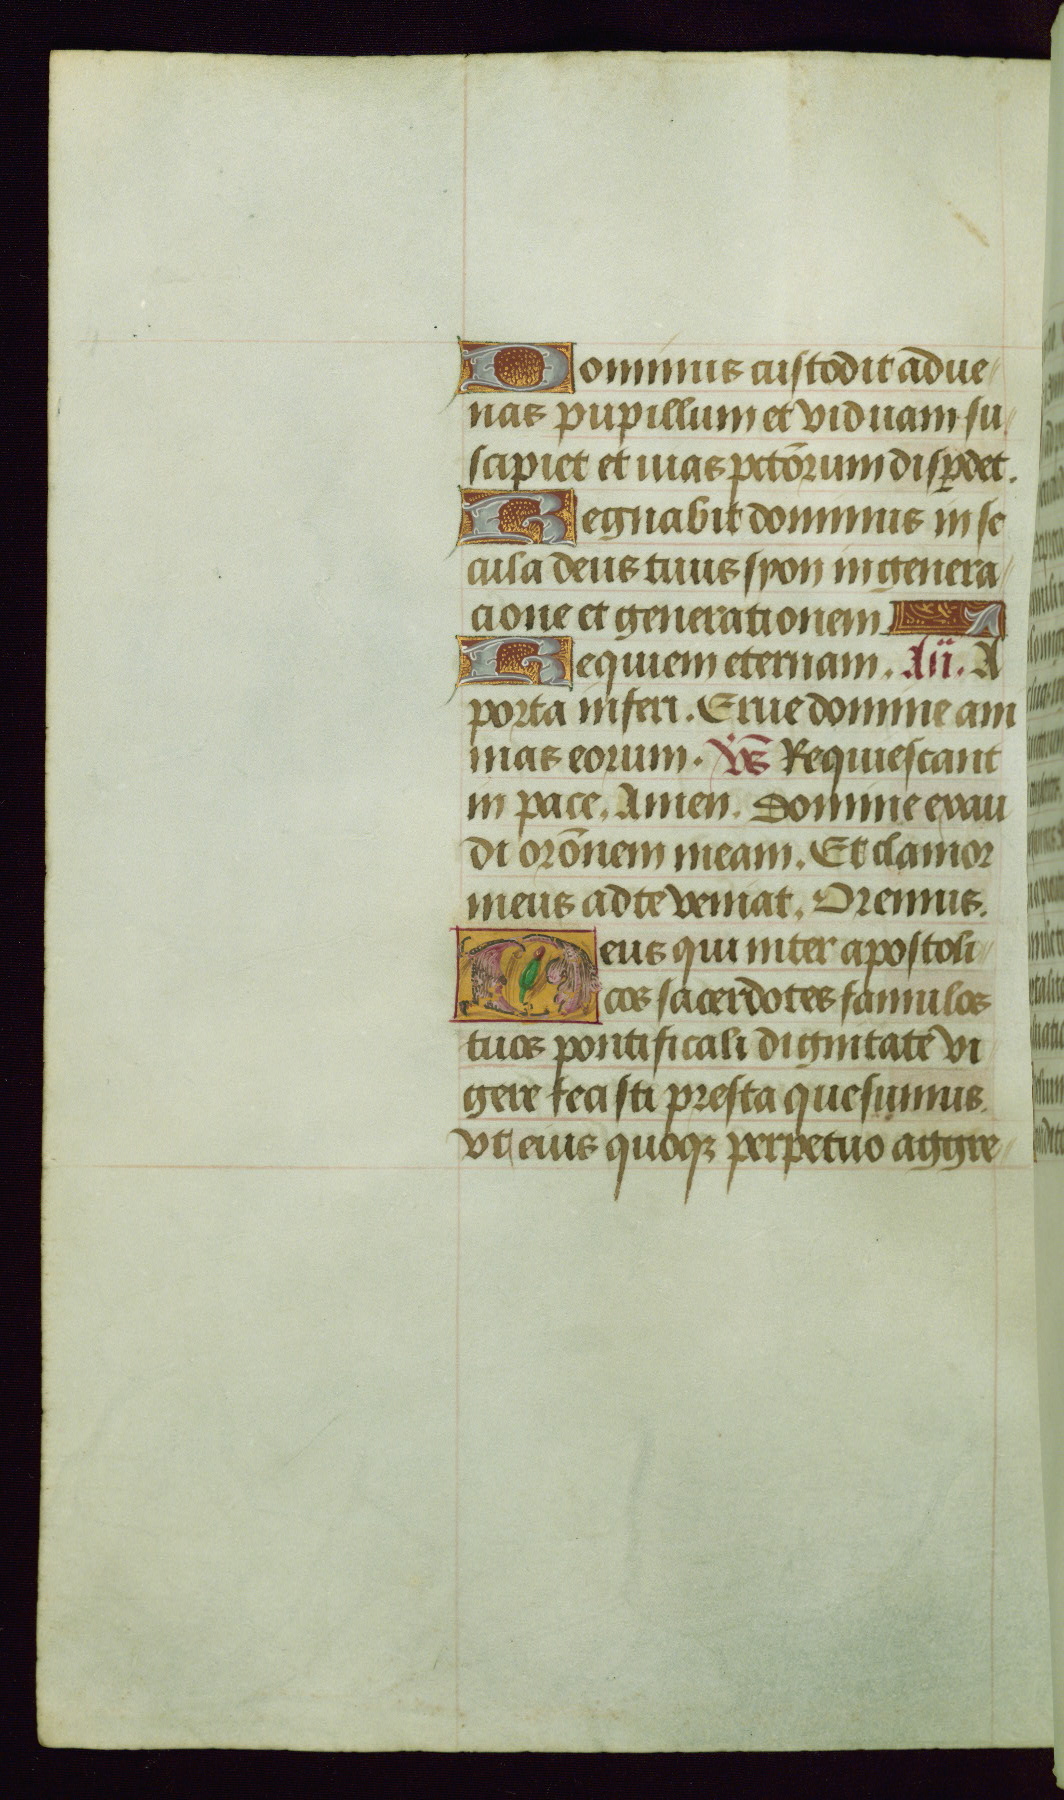 Dominus custodit adue
nas pupillum et viduam su
scipiet et uias pctōrum disp̄det.
Regnabit dominus in se
cula deus tuus syon in genera
cione et generationem
Requiem eternam. Añ. A
porta inferi. Erue domine ani
mas eorum. Vs Requiescant
in pace. Amen. Domine exau
di orōnem meam. Et clamor
meus ad te veniat. Oremus.
Deus qui inter apostoli
cos sacerdotes famulos
tuos pontificali dignitate vi
gere fecisti presta quesumus.
vt eius quoqꝫ perpetuo aggre